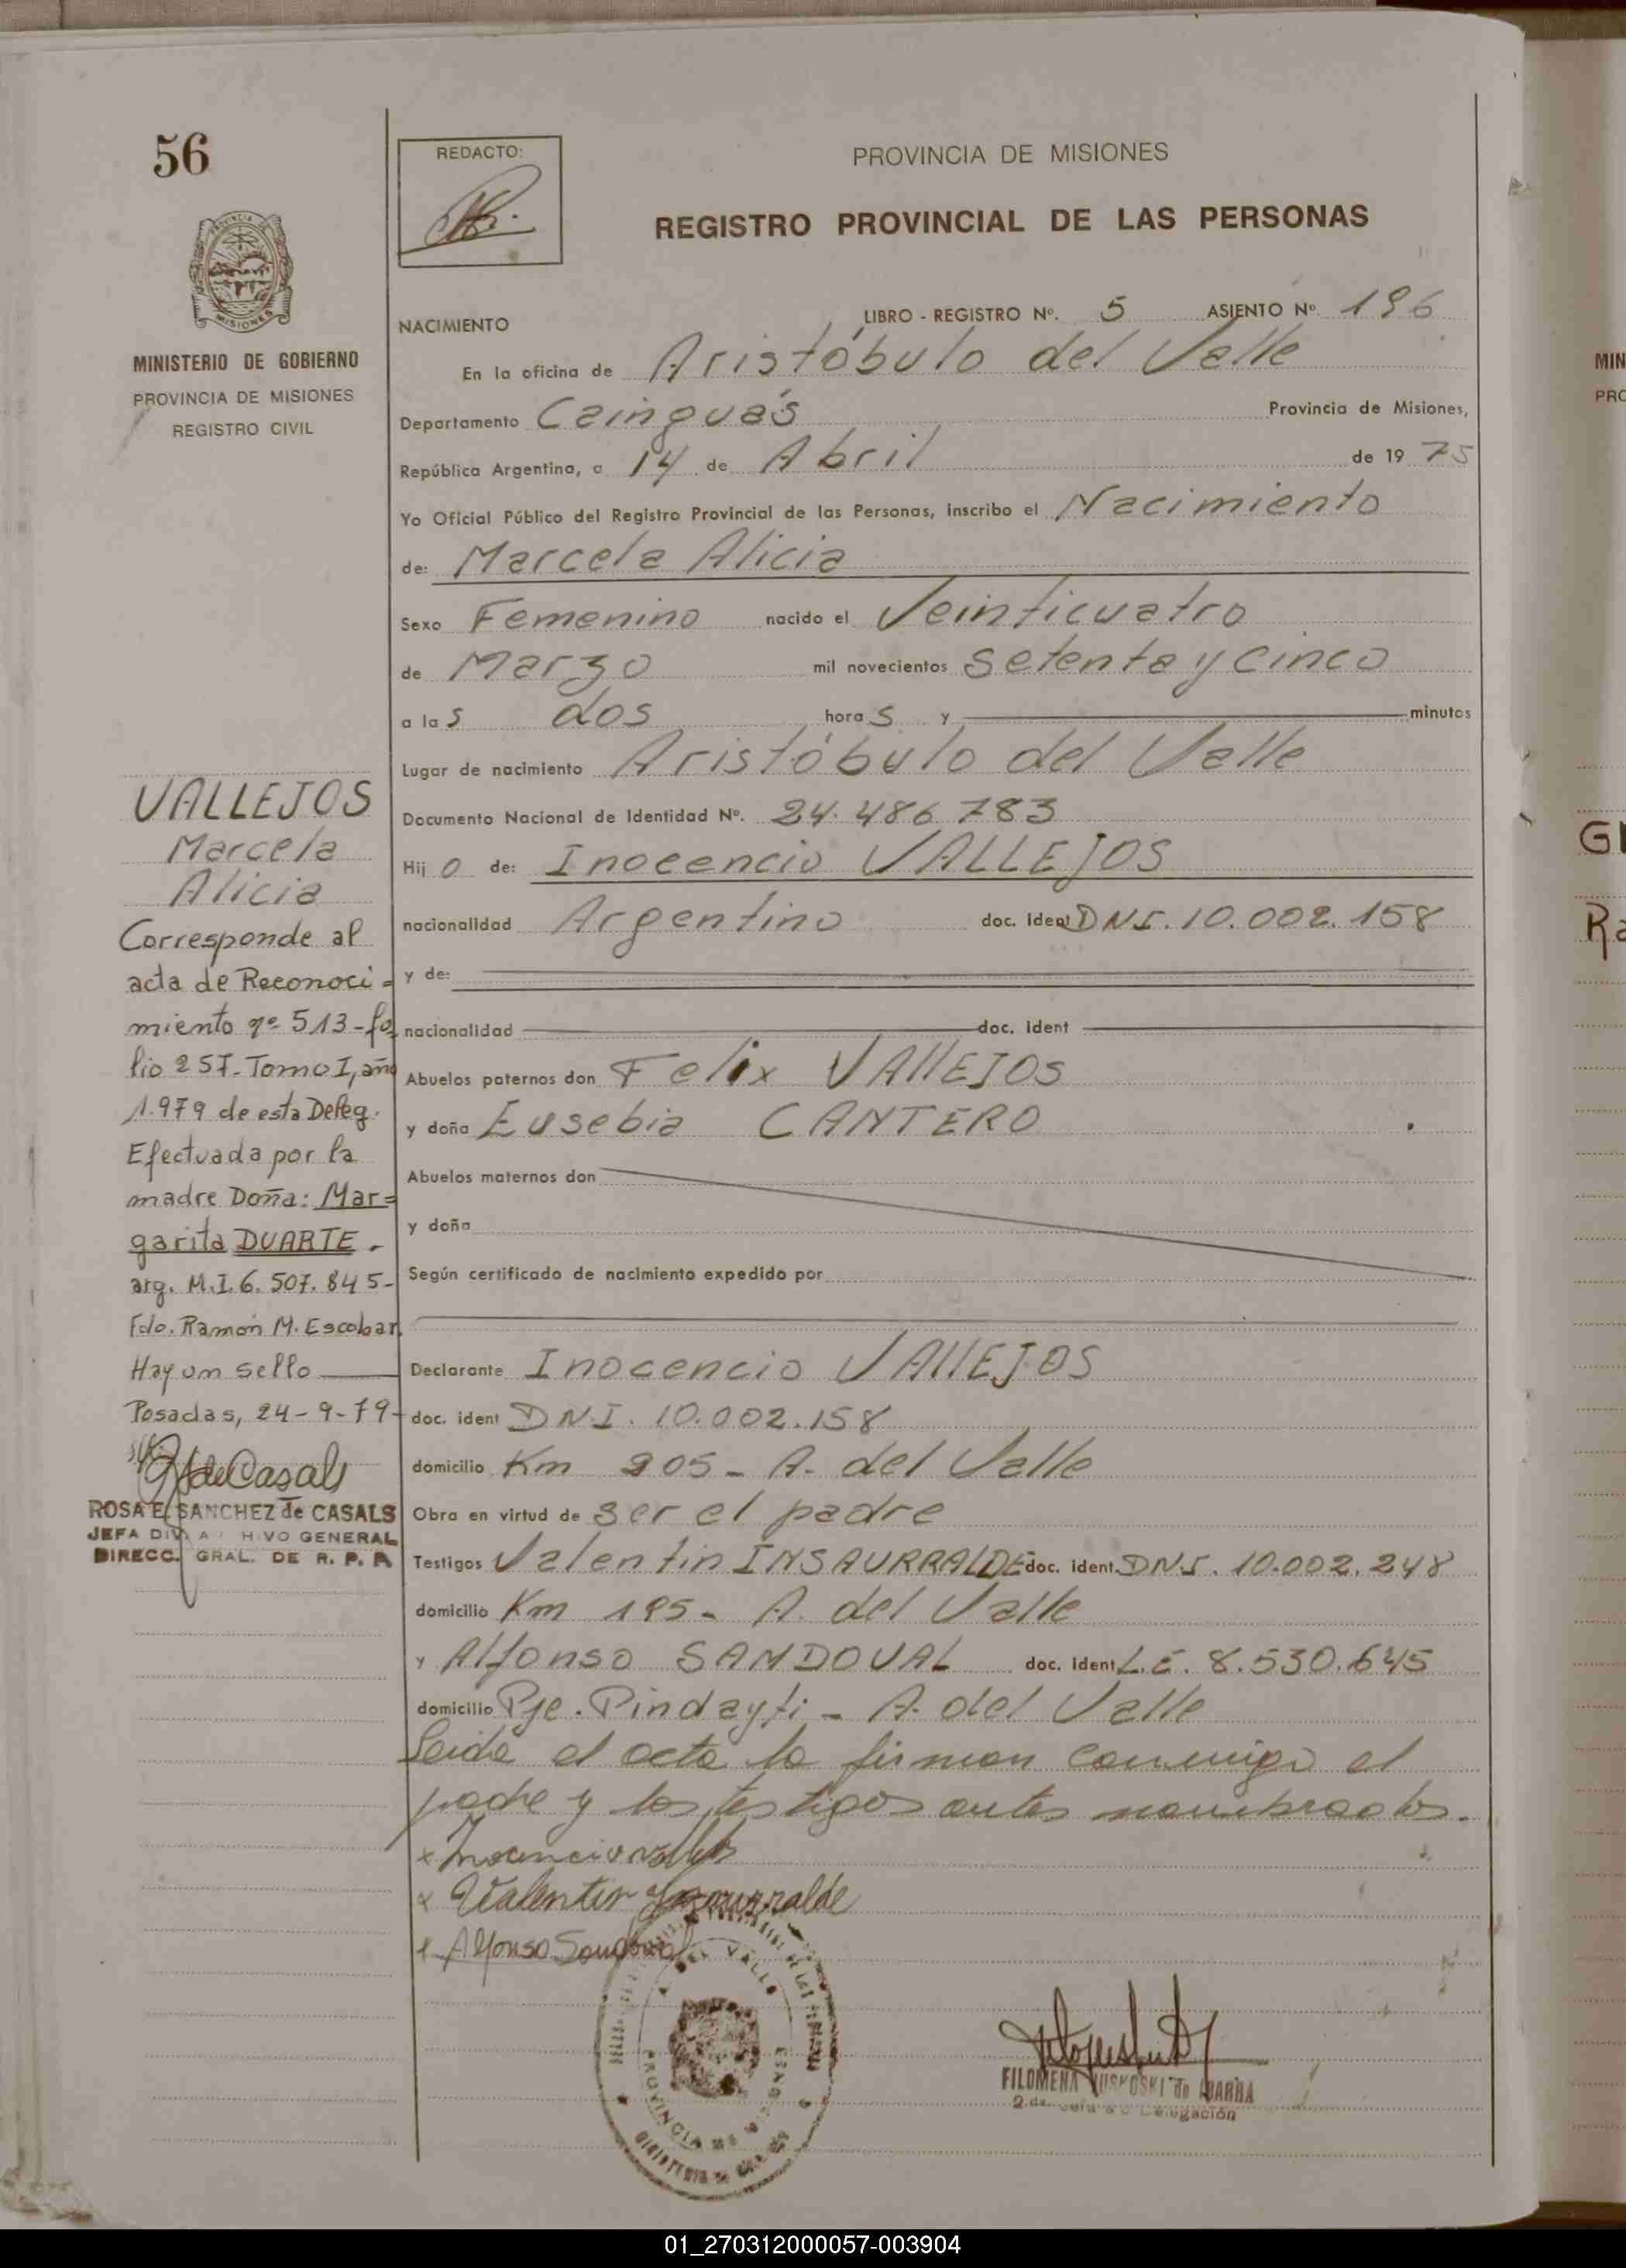 56
REDACTO:
PROVINCIA DE MISIONES
REGISTRO PROVINCIAL DE LAS PERSONAS
PROVINCIA
MISIONES
MINISTERIO DE GOBIERNO
PROVINCIA DE MISIONES
REGISTRO CIVIL
NACIMIENTO
LIBRO - REGISTRO Nº. 5 ASIENTO Nº 196
En la oficina de Aristóbulo del Valle
Departamento Cainguás Provincia de Misiones,
República Argentina, a 14 de Abril de 19 75
Yo Oficial Público del Registro Provincial de las Personas, inscribo el Nacimiento
de: Marcela Alicia
Sexo Femenino nacido el Veinticuatro
de Marzo mil novecientos setenta y cinco
a las dos horas y minutos
Lugar de nacimiento Aristóbulo del Valle
Documento Nacional de Identidad Nº. 24.486.783
Hijo de: Inocencio VALLEJOS
nacionalidad Argentino doc. ident DNI. 10.002.158
y de:
nacionalidad doc. ident
Abuelos paternos don Felix VAllEJOS
y doña Eusebia CANTERO
Abuelos maternos don
y doña
Según certificado de nacimiento expedido por
Declarante Inocencio VAllEJOS
doc. ident DNI. 10.002.158
domicilio Km 205 - A. del Valle
Obra en virtud de ser el padre
Testigos Valentin INSAURRALDE doc. ident. DNI. 10.002.248
domicilio Km 195- A. del Valle
y Alfonso SANDOVAL doc. ident L.E. 8.530.645
domicilio Pje. Pindayti - A. del Valle
Leida el acta la firman conmigo el
padre y los testigos antes nombrados.
x Inocencio Vallejos
x Valentin Insaurralde
x Alfonso Sandoval
VALLEJOS
Marcela
Alicia
Corresponde al
acta de Reconoci=
miento nº 513-fo
lio 257-Tomo I, año
1.979 de esta Deleg.
Efectuada por la
madre Doña: Mar=
garita DUARTE.
arg. M.I. 6.507.845-
Fdo. Ramón M. Escobar.
Hay un sello
Posadas, 24-9-79-
de Casals
ROSA E. SANCHEZ de CASALS
JEFA DIV. ARCHIVO GENERAL
DIRECC. GRAL. DE R. P. P.
DEL VALLE
PROVINCIA
FILOMENA de IBARRA
Delegación
MIN
PRO
GI
Ra
01_270312000057-003904